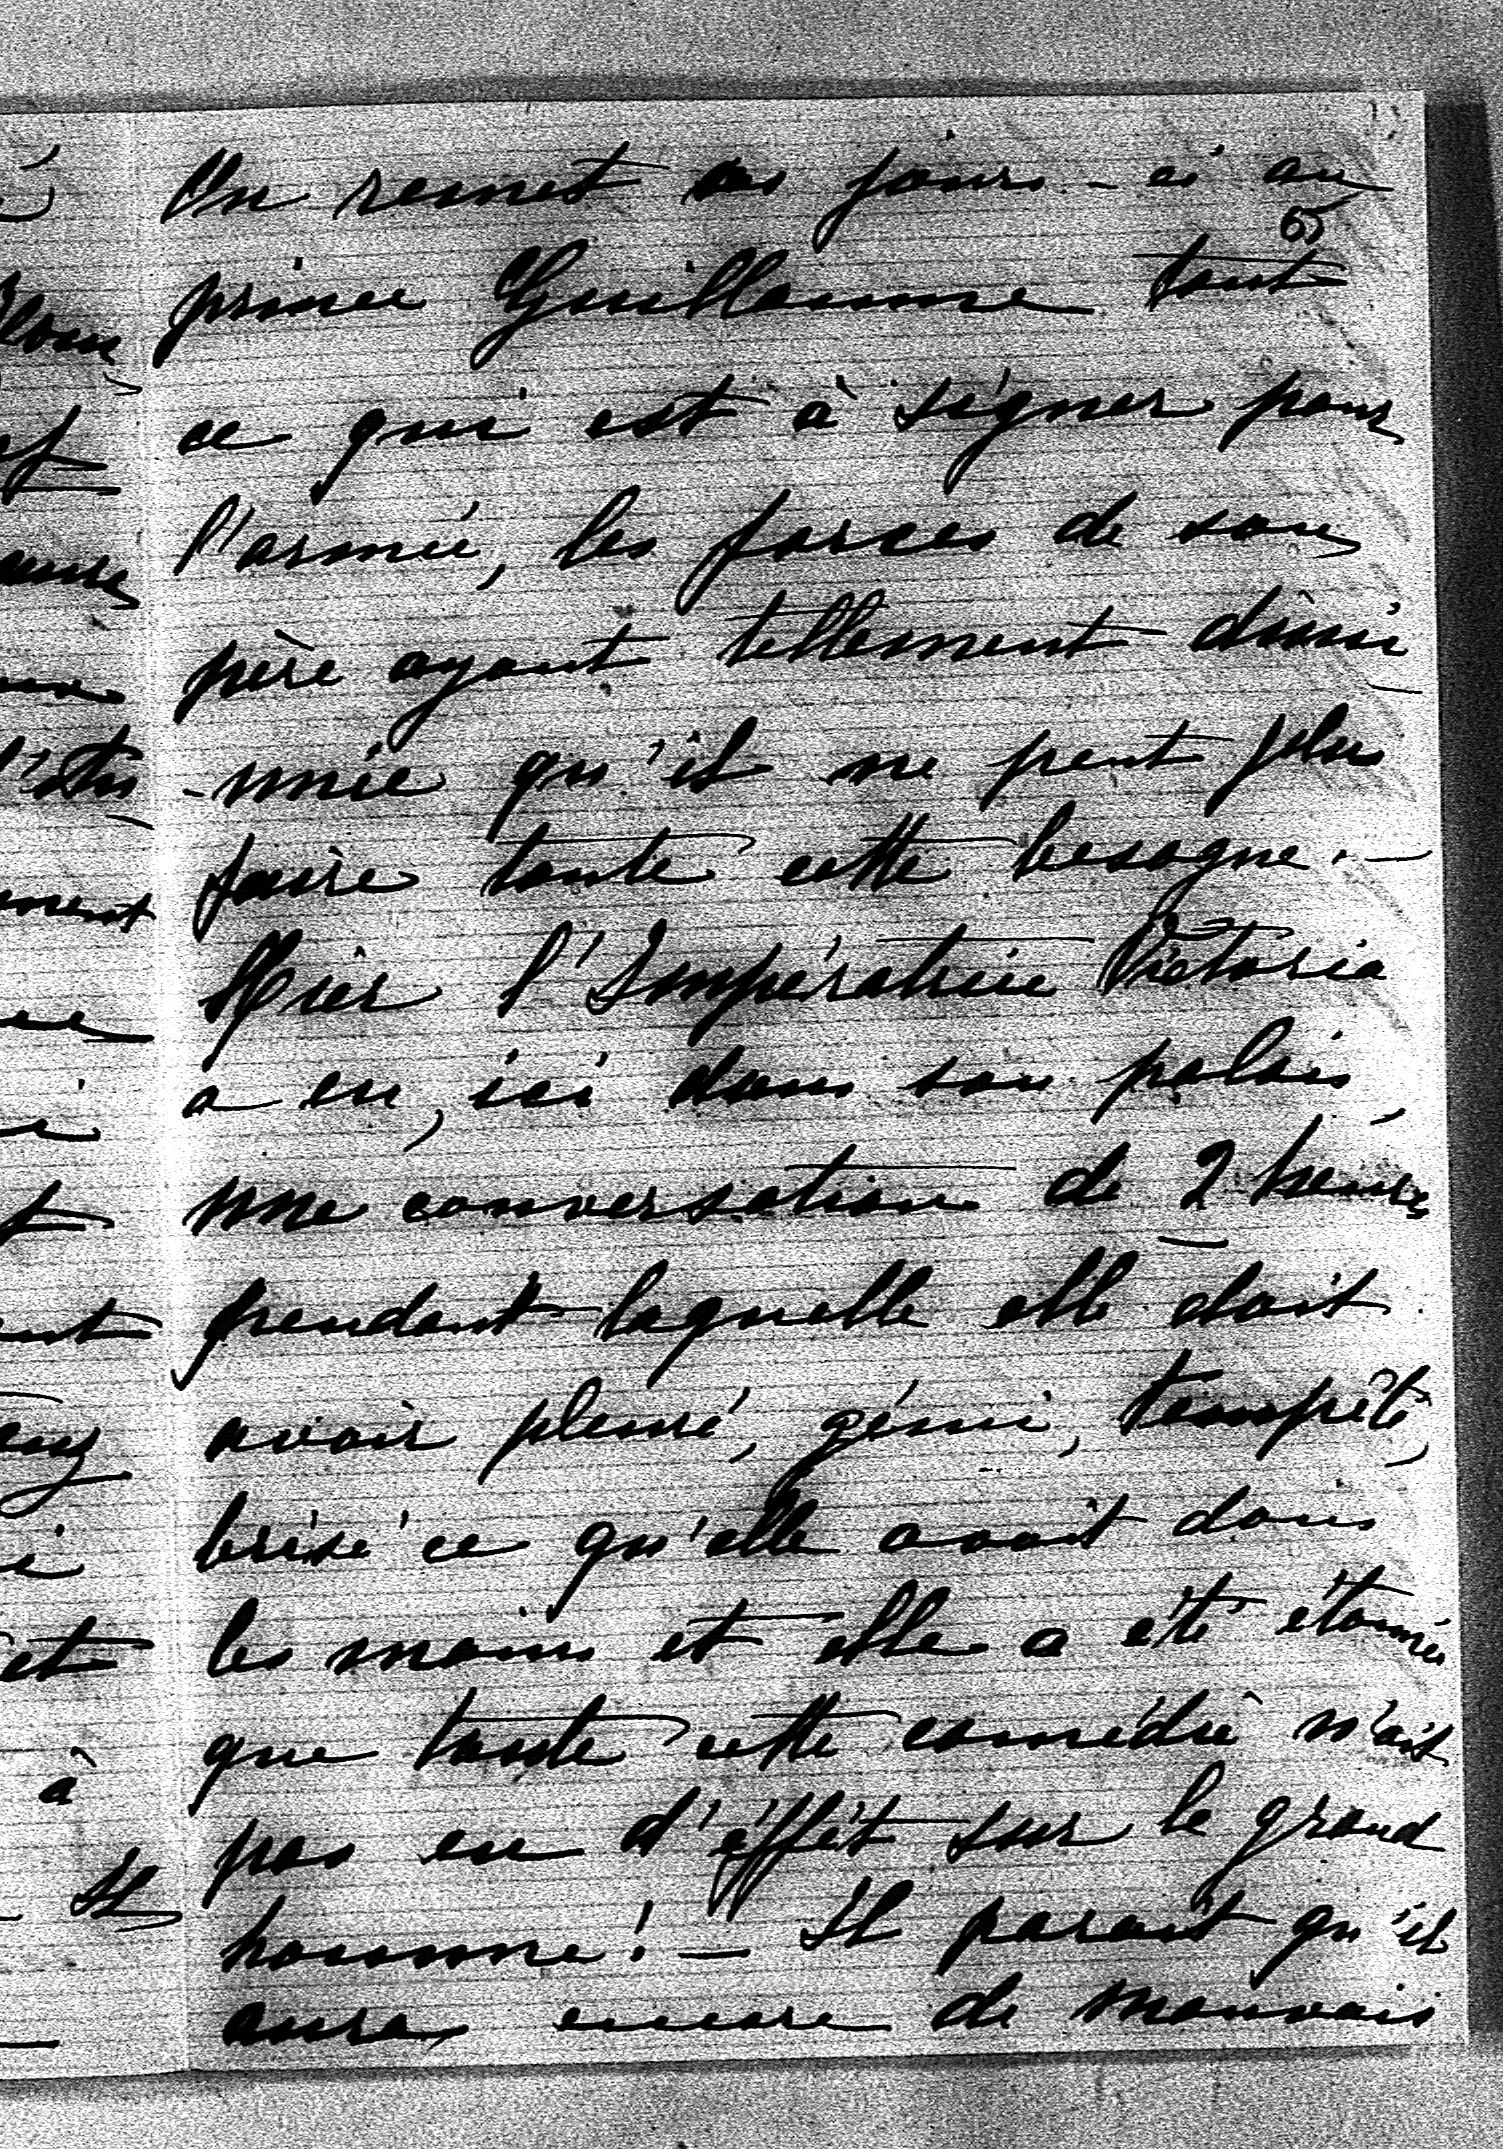 On remet ces jours-ci au
65
prince Guillaume tout
ce qui est à signer pour
l'armée, les forces de son
père ayant tellement dimi
-nuée qu'il ne peut plus
faire toute cette besogne. —
Hier l'Impératrice Victoria
a eu, ici dans son palais,
une conversation de 2 heures
pendant laquelle elle doit
avoir pleuré, gémi, tempêté,
brisé ce qu'elle avait dans
les mains et elle a été étonnée
que toute cette comédie n'ait
pas eu d'éffêt sur le grand
homme! — Il parait qu'il
aura encore de mauvais